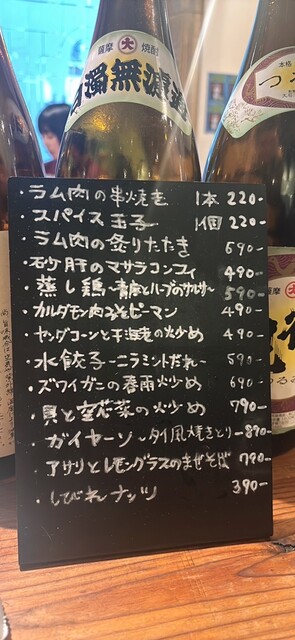 薩摩 大 焼酎
濁無濃
本格
つ
・ラム肉の串焼き 1本 220-
・スパイス玉子 1個 220-
・ラム肉の炙りたたき 590-
・砂肝のマサラコンフィ 490-
・蒸し鶏-青唐とハーブのサルサ- 590-
・カルダモン肉みそピーマン 490-
・ヤングコーンと干海老の炒め 490-
・水餃子-ニラミントだれ- 590-
・ズワイガニの春雨炒め 690-
・貝と空芯菜の火炒め 790-
・ガイヤーン-タイ風焼きとり- 890-
・アサリとレモングラスのまぜそば 790-
・しびれナッツ 390-